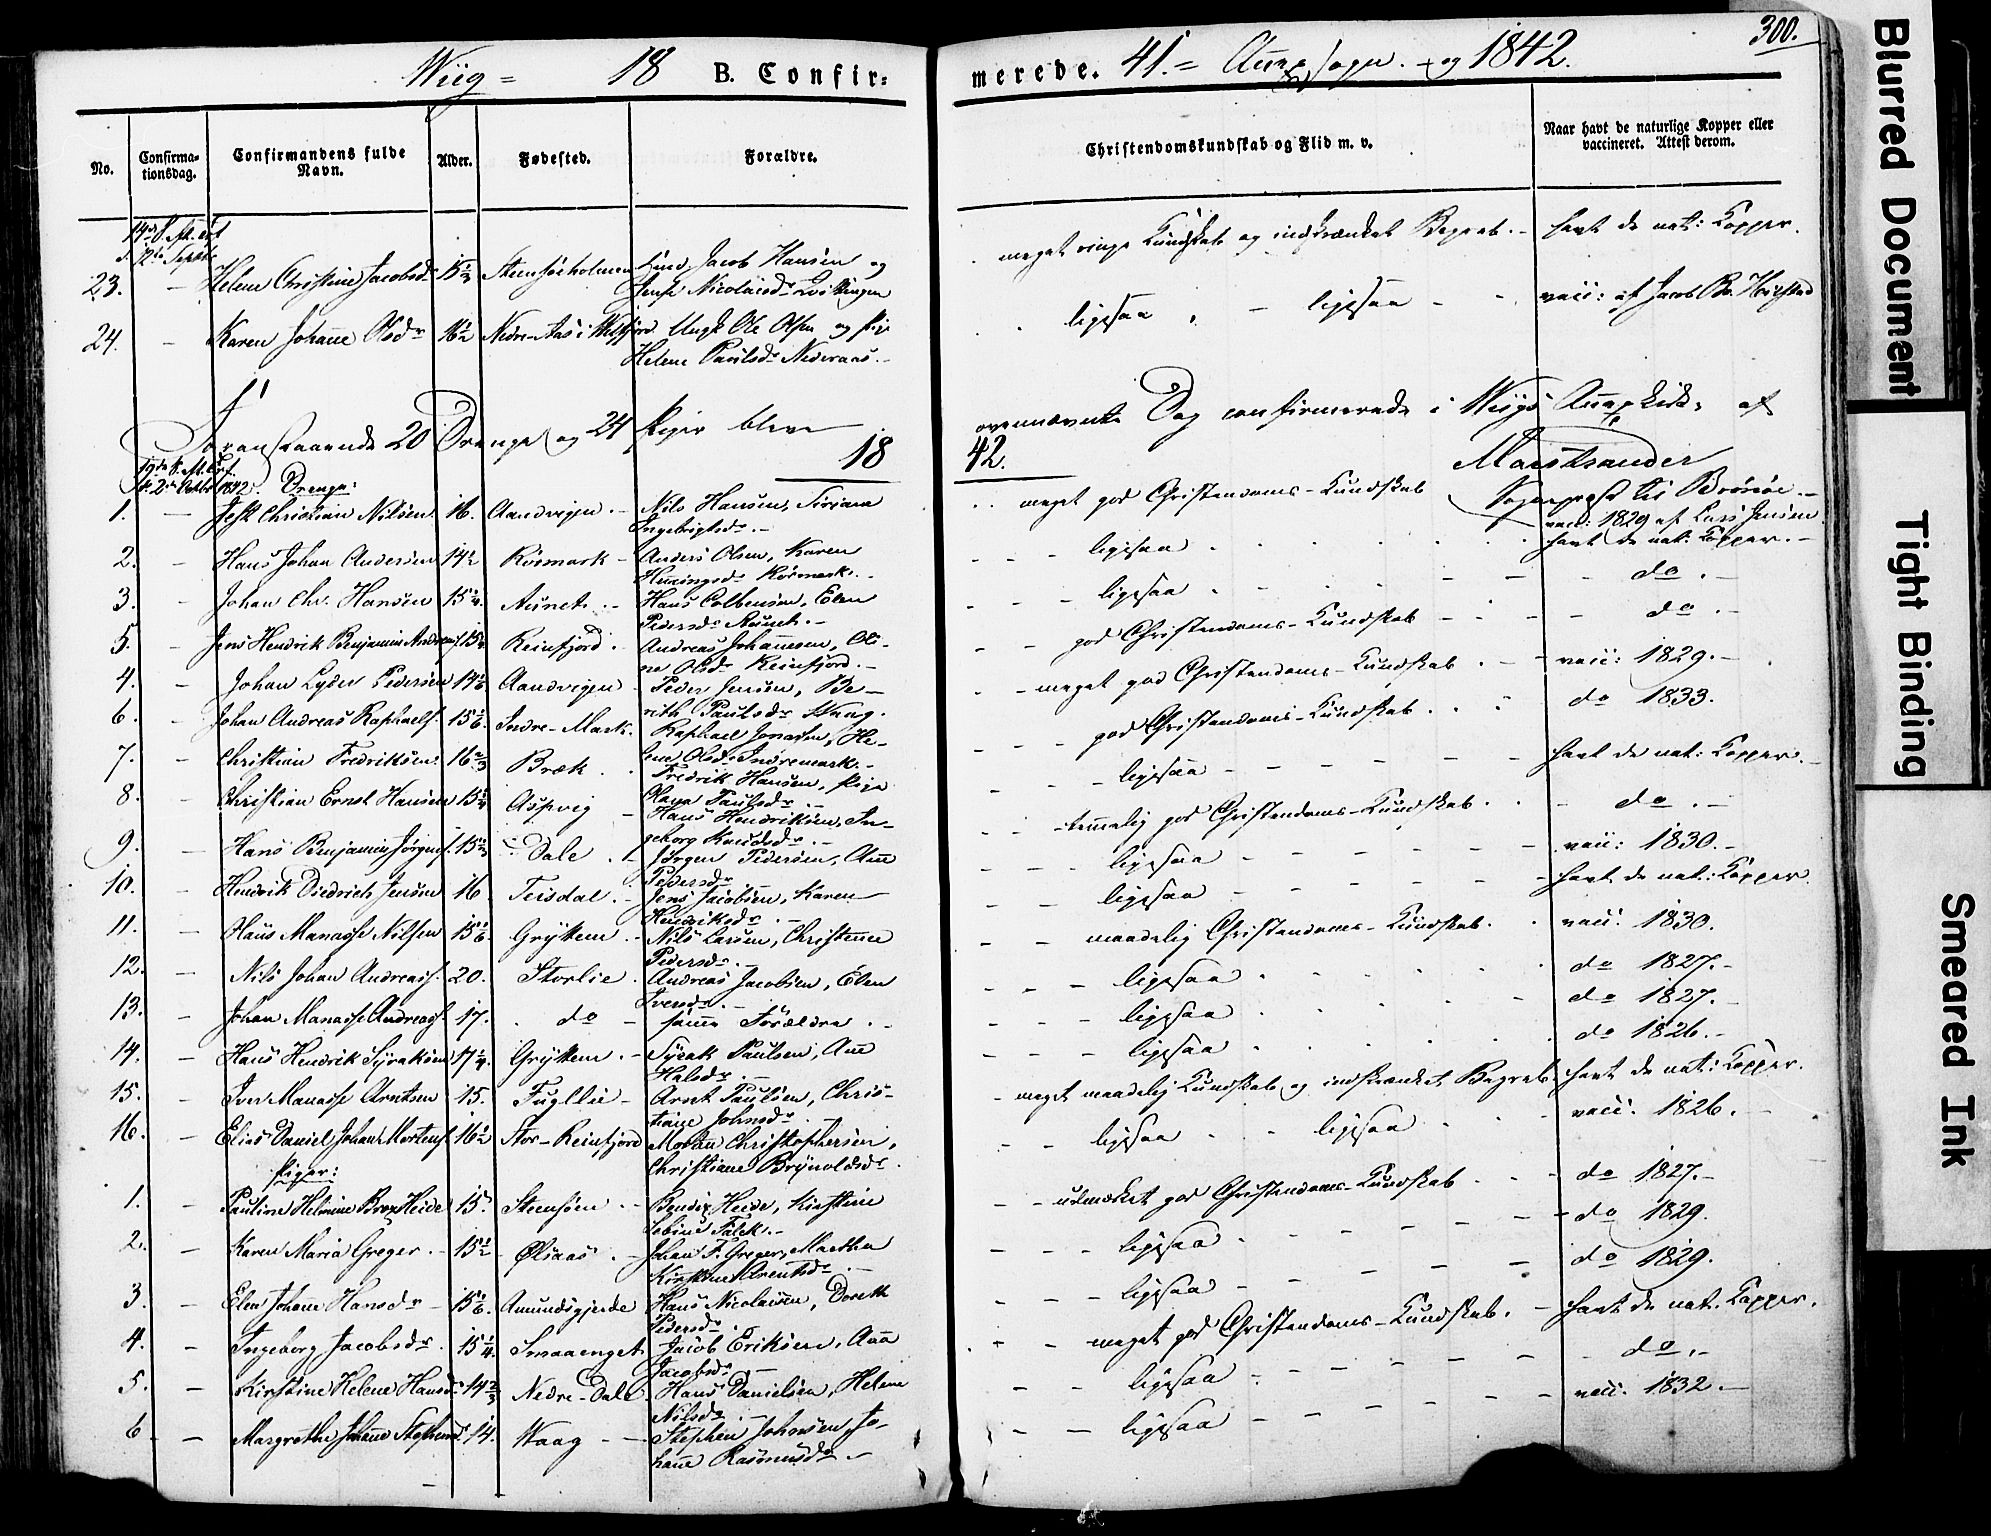 300.
Wiig = 18 B. Confir=
merede. 41. = Annex sogn. - og 1842.
No. Confirmationsdag. Confirmandens fulde Navn. Alder. Fødested. Forældre.
Christendomskundskab og Flid m. v. Naar havt de naturlige Kopper eller vaccineret. Attest derom.
meget ringe Kundskab og indskrænket Begreb. - havt de nat: Kopper.
23. - Helene Christine Jacobsd. 15 2/3 Steensøeholmen Huusm. Jacob Hansen og
Nicolaisd.
ligesaa - ligesaa - - vacc: af Jacob
24. - Karen Johanne Olsdr 16 1/2 Nedre-Aas i Ungk. Ole Olsen og Pige
Helene Paulsdr Nederaas. -
Foranstaaende 20 Drenge og 24 Piger bleve
ovennævnte Dag confirmerede i Wiigs Annexkirke af
18
42.
Sogneprest til Brønøe. -
1842. Drenge:
1. - Jest Christian Nilsen. 16. Aandvigen. - Nils Hansen,
Ingebrigtsdr. -
meget god Christendoms-Kundskab vacc: 1829 af Lars Jensen
2. - Hans Johan Andersen 14 1/2 Rørmark - Anders Olsen, Karen
Henningsdr Rørmark. -
- - ligesaa havt de nat: Kopper. -
3. - Johan Chr. Hansen 15 1/4. Aunet. - Hans Colbensen, Elen
Pedersdr Aunet. -
- - ligesaa - - do. -
5. - Jens Hendrik Benjamin Andreas. 15 1/4 Reinfjord. Andreas Johannesen, Oli-
ne Olsdr Reinfjord. -
- - god Christendoms-Kundskab - - do. -
4. - Johan Lyder Pedersen 14 Aandvigen - Peder Jensen, Be-
rith Paulsdr Waag.
- - meget god Christendoms-Kundskab. - - vacc: 1829. -
6. - Johan Andreas Raphaels. 15 1/6. Indre-Mark. Raphael Jonasen, He-
lene Olsdr Indremark. -
- - god Christendoms-Kundskab. do 1833.
7. - Christian Fredriksen. 16 2/3 Bræk. Fredrik Hansen, Pige
Paulsdr -
- - ligesaa - - - havt de nat: Kopper. -
8. - Christian Ernst Hansen 15 3/4 Aspvig - Hans Hendriksen, In-
geborg Knudsdr. -
- - temmelig god Christendoms-Kundskab. - do. -
9. - Hans Benjamin Jørgens. 15 2/3 Dale. - Jørgen Pedersen, Ane
Pedersdr
- - ligesaa - - - vacc: 1830. -
10. - Hendrik Diedrich Jensen 16 Teisdal. - Jens Jacobsen, Karen
Hendriksdr. -
- - ligesaa - - - havt de nat: Kopper.
11. - Hans Manasse Nilsen 15 5/6. Gryttem. - Nils Larsen, Christenne
Pedersdr. -
- - maadelig Christendoms-Kundskab. vacc. 1830.
12. - Nils Johan Andreass. 20. Storlie. Andreas Jacobsen, Elen
Iversdr. -
- - ligesaa do 1827. -
13. - Johan Manasse Andreass. 17. do - samme Forældre. -
- - ligesaa do 1827. -
14. - Hans Hendrik Syraksen 17 1/4. Gryttem. - Syrak Paulsen, Ane
Halsdr. -
- - ligesaa do 1826. -
15. - Iver Manasse Arntsen 15. Fugllie - Arnt Paulsen, Chris-
tiane Johnsdr. -
- meget maadelig Kundskab og indskrænket Begreb. havt de nat: Kopper.
16. - Elias Daniel Johan Mortens. 16 1/2 Stor-Reinfjord Morten Christophersen,
Christiane Brynoldsdr.
- - ligesaa - ligesaa vacc. 1826. -
Piger:
1. - Pauline Helmine Brox Heide 15. Steensøen. - Bendix Heide, Kirstine
Sebine Falck. -
- - udmærket god Christendoms-Kundskab - do 1827. -
2. - Karen Maria Greger. - 15 1/2 Ølsaas. - Johan F. Greger, Martha
Kirstine Arentsdr. -
- - ligesaa - - do 1829.
3. - Elen Johanne Hansdr - 15 5/6. Amundsgjerde Hans Nicolaisen, Doreth
Pedersdr.
- - ligesaa - - do 1829.
4. - Ingeborg Jacobsdr. 15 1/4. Smaaenget. Jacob Eriksen, Ana
Jacobsdr. -
- meget god Christendoms-Kundskab. - havt de nat. Kopper.
5. - Kirstine Helene Hansd. 14 2/3 Nedre-Dale. Hans Danielsen, Helene
Nilsdr.
- - ligesaa - - do. -
6. - Margrethe Johanne Stephensd. 14. Waag - Stephen Johnsen, Jo-
hanne Rasmusdr. -
- - ligesaa - - vacc. 1832. -
Blurred Document
Tight Binding
Smeared Ink